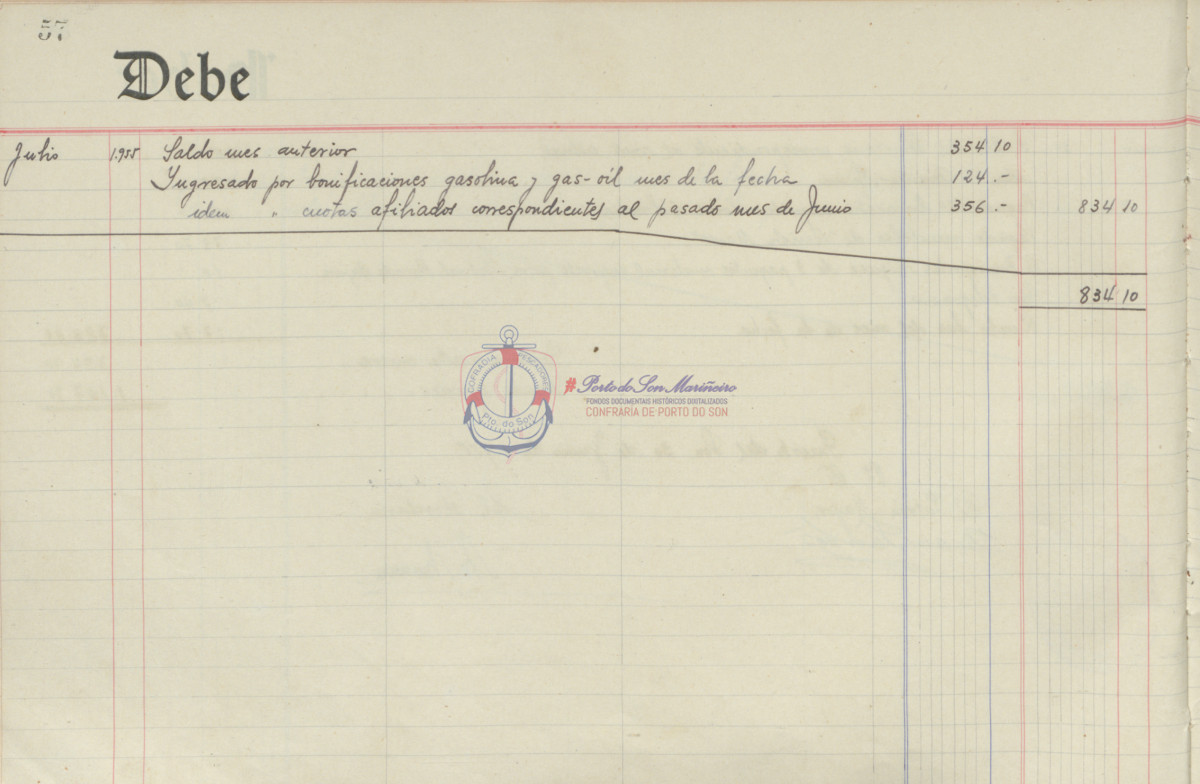 57
Debe
Julio 1.955 Saldo mes anterior 354 10
Yngresado por bonificaciones gasolina y gas-oil mes de la fecha 124.-
idem " cuotas afiliados correspondientes al pasado mes de Junio 356.- 834 10
834 10
COFRADIA PESCADORES
Pto. do Son
# Porto do Son Mariñeiro
"FONDOS DOCUMENTAIS HISTÓRICOS DIXITALIZADOS
CONFRARÍA DE PORTO DO SON